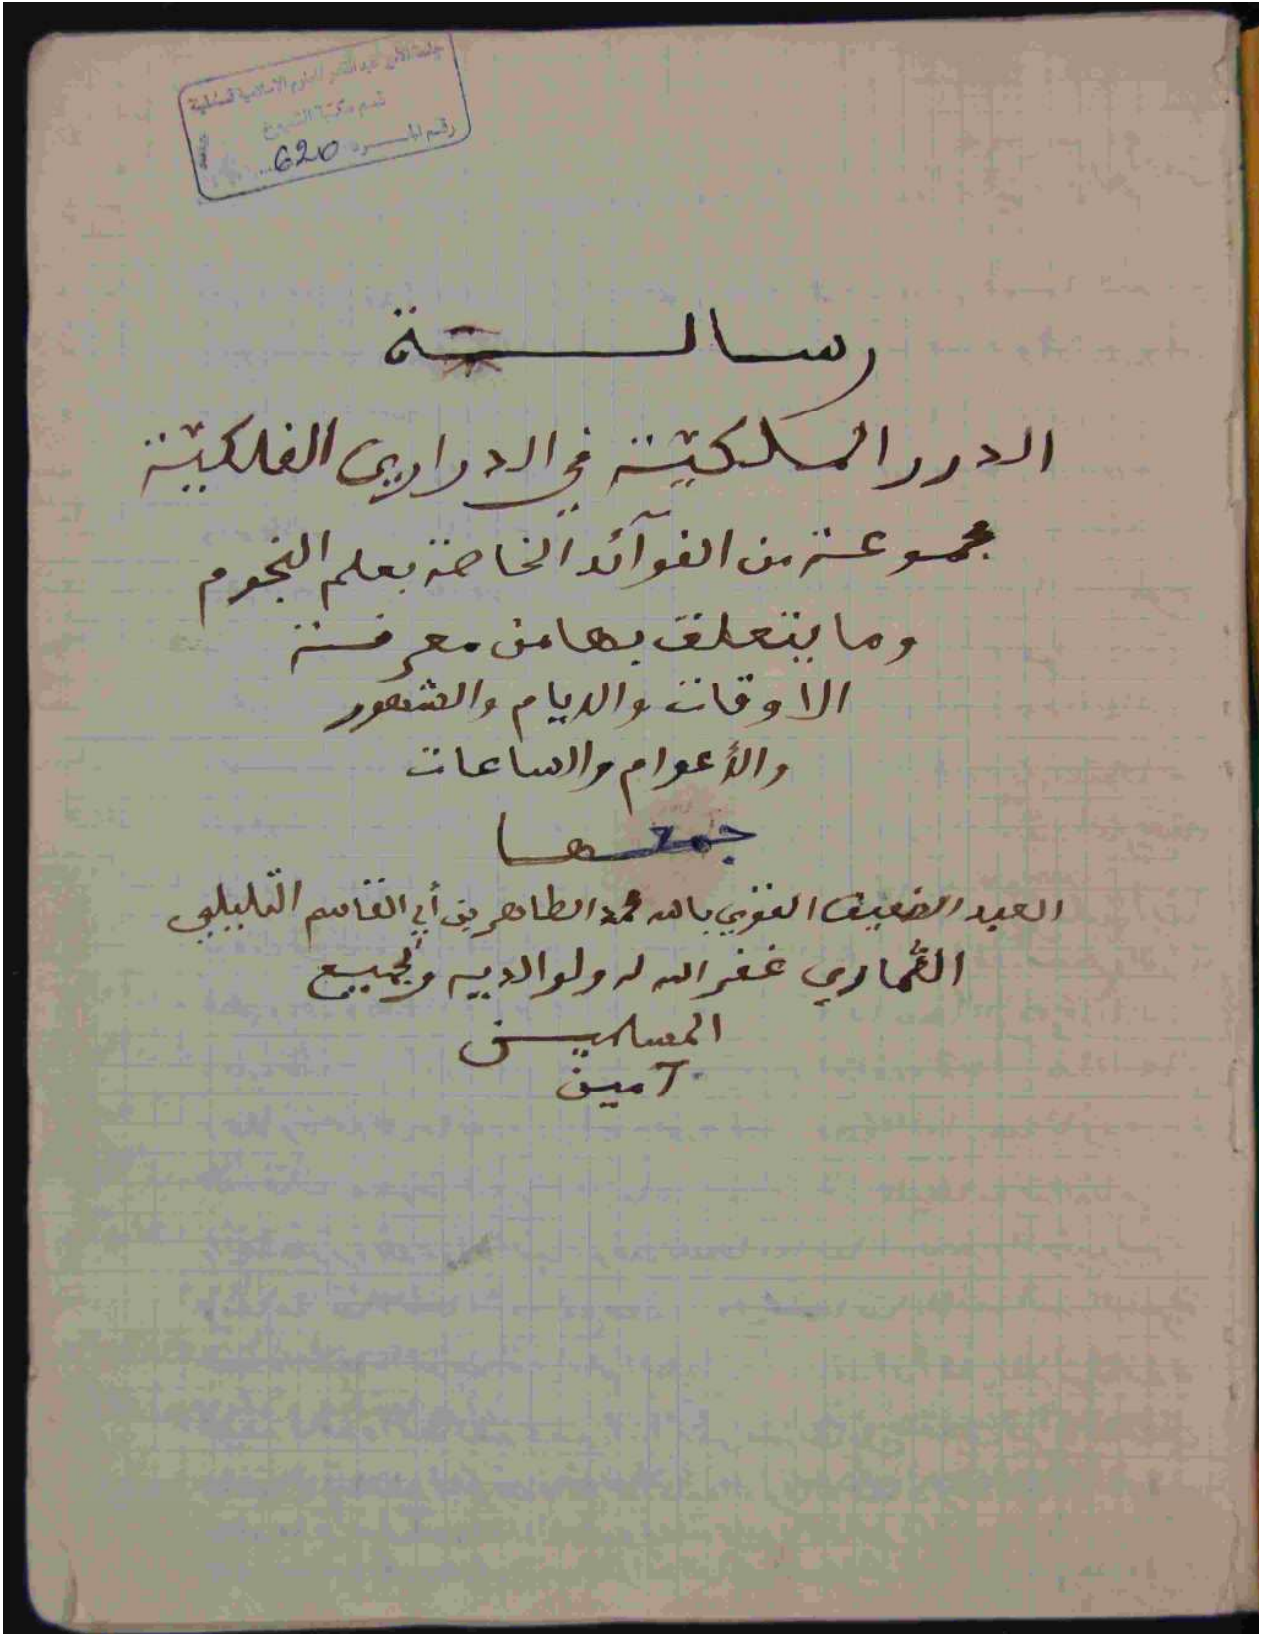 جامعة الأمير عبد القادر للعلوم الاسلامية قسنطينة
قسم مكتبة الشيوخ
رقم الجـــرد 620
رسالـــــــة
الدرر السلكيّة في الدراري الفلكيّة
مجموعة من الفوآئد الخاصة بعلم النجوم
وما يتعلق بها من معرفة
الاوقات والايام والشهور
والأعوام والساعات
جمعـــها
العبد الضعيف القوي بالله محمد الطاهر بن أبي القاسم التليلي
القُماري غفر الله له ولوالديه ولجميع
المسلميـــن
آمين